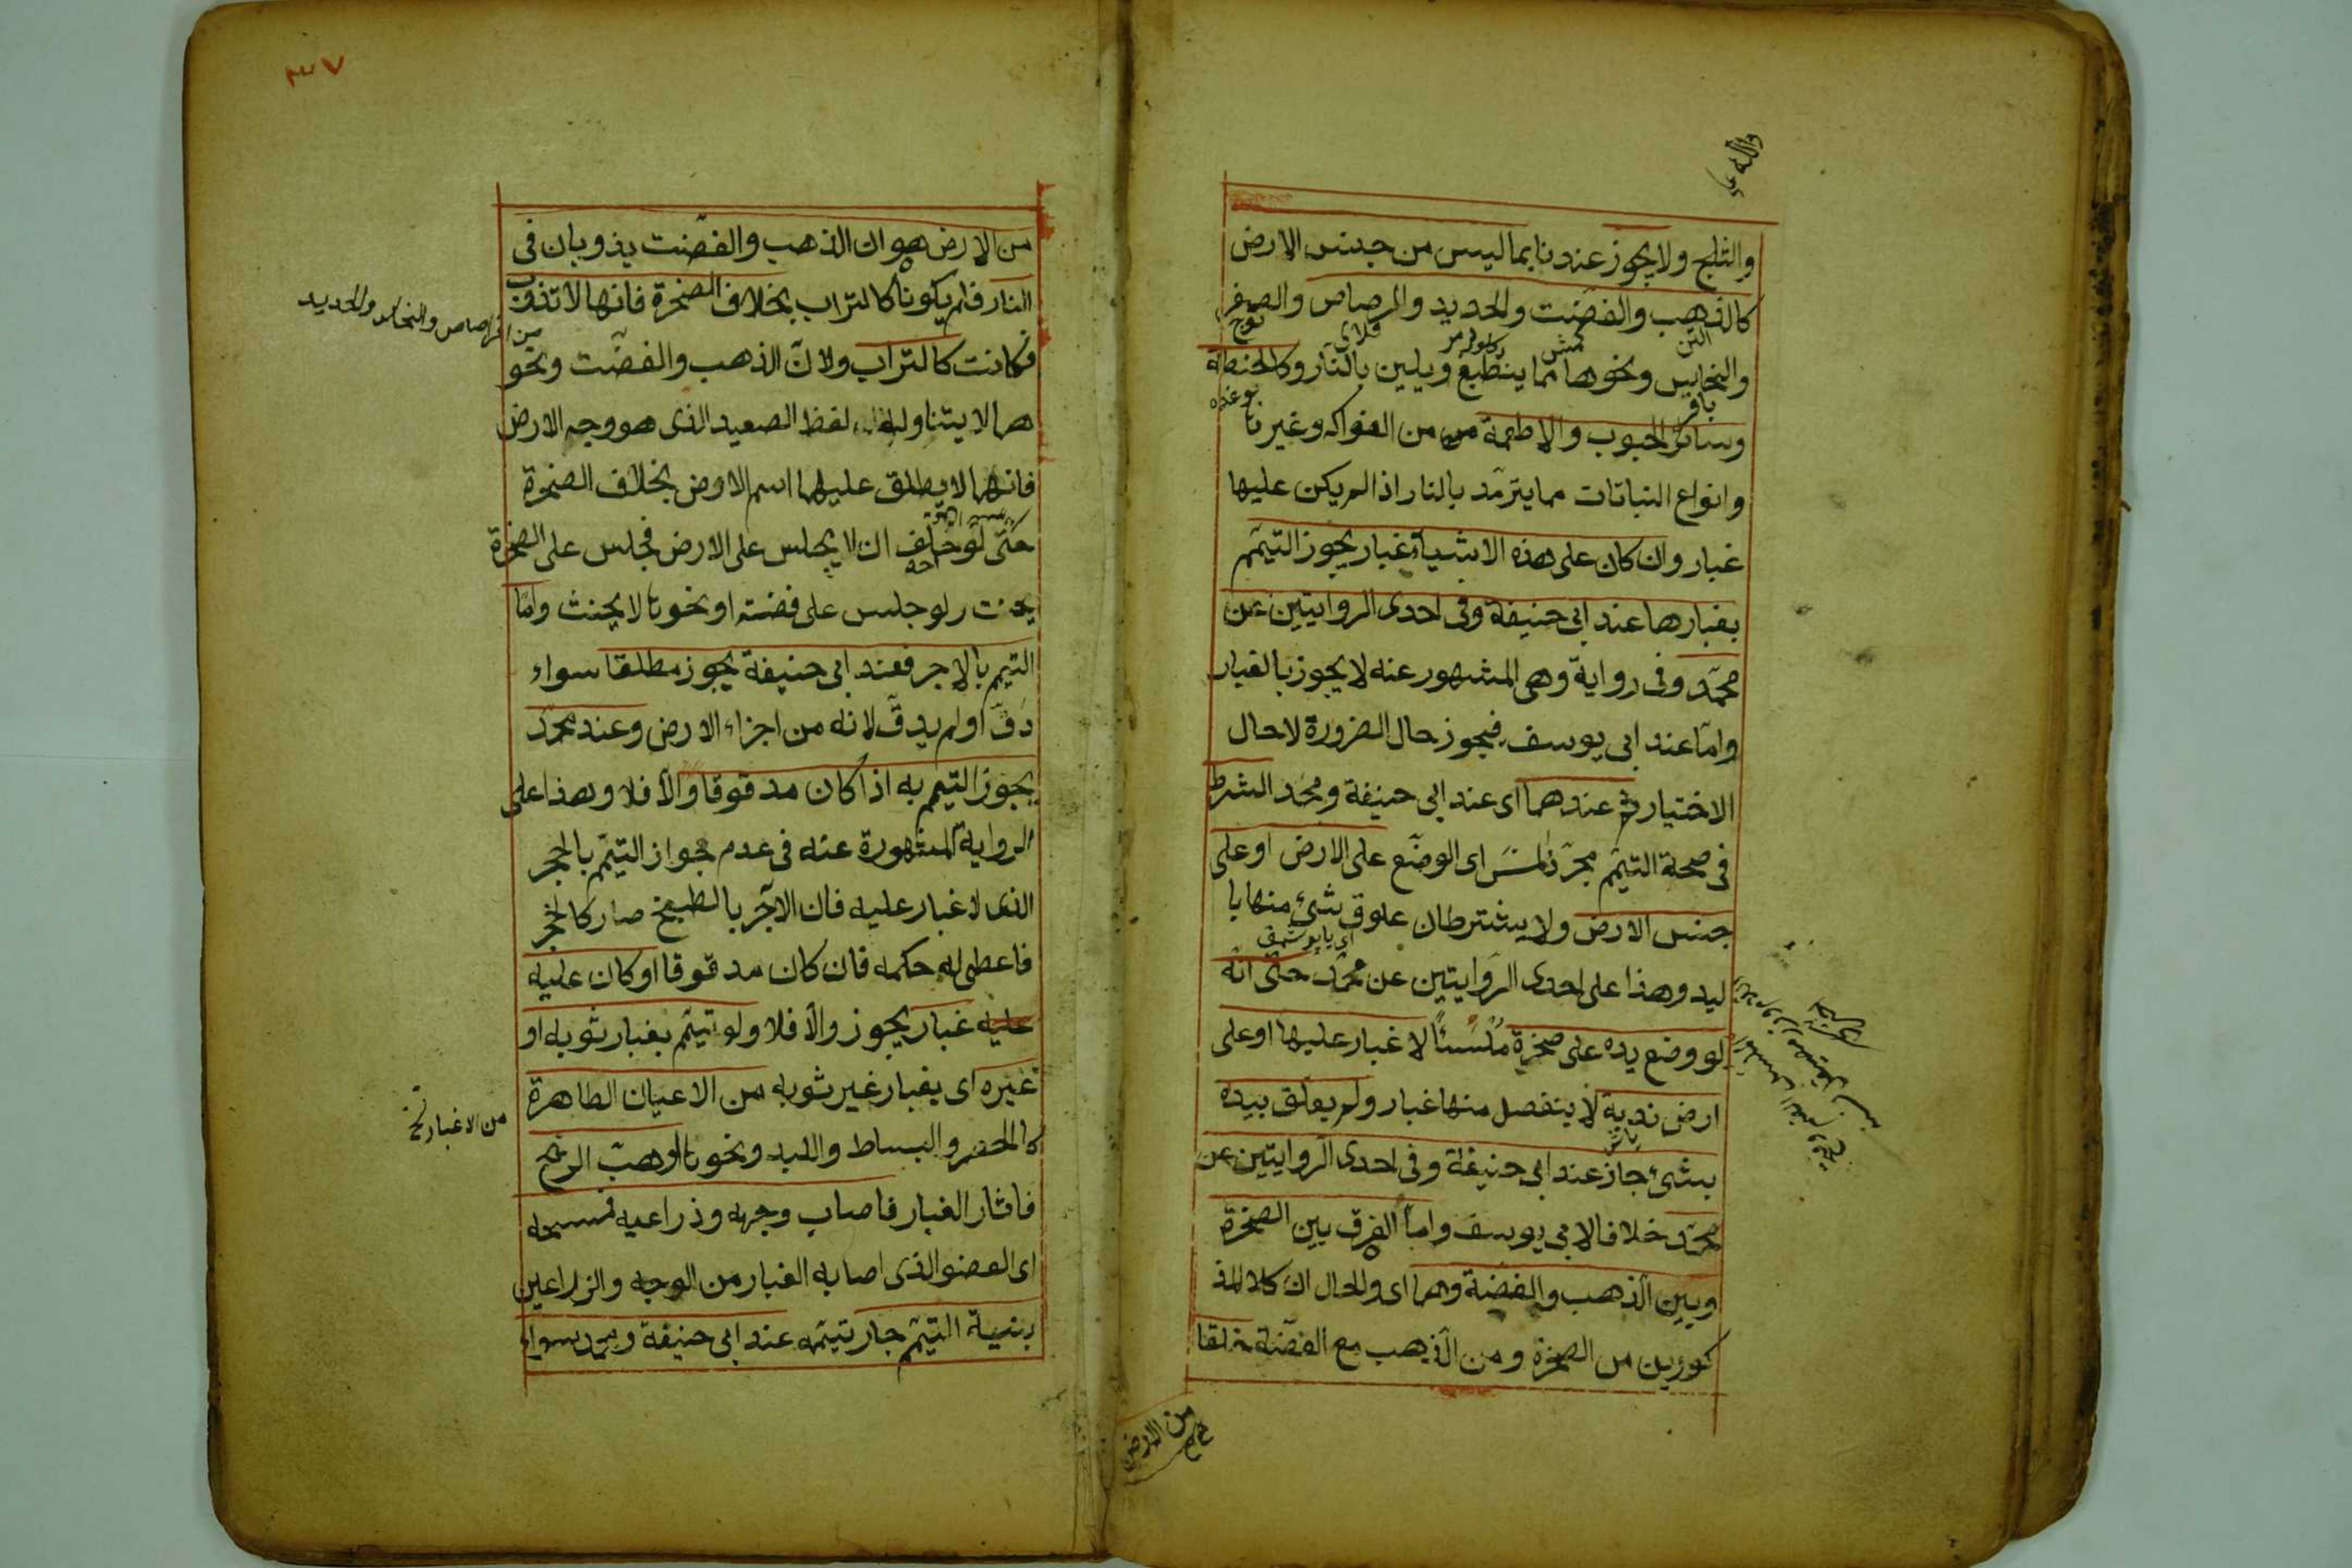 والثلج ولا يجوز عندنا بما ليس من جنس الارض
كالذهب والفضت والحديد والرصاص والصفر
والنحايس ونحوها مما ينطبع ويلين بالنار وكالحنطة
وسائر الحبوب والاطعمة من الفواكه وغيرنا
وانواع النباتات مما يترمد بالنار اذا لم يكن عليها
غبار وان كان على هذه الاشياء غبار يجوز التيمم
بغبارها عند ابى حنيفة وفى احدى الروايتين عن
محمد وفى رواية وهى المشهور عنه لا يجوز بالغبار
واما عند ابى يوسف فيجوز حال الضرورة لا حال
الاختيار ثم عندهما اى عند ابى حنيفة ومحمد الشرط
فى صحة التيمم مجرد المس اى الوضع على الارض او على
جنس الارض ولا يشترطان علوق شئ منها با
ليد وهذا على احدى الروايتين عن محمد حتى انه
لو وضع يده على صخرة ملسئا لا غبار عليها او على
ارض ندية لا ينفصل منها غبار ولم يعلق بيده
بشئ جاز عند ابى حنيفة وفى احدى الروايتين عن
محمد خلافا لابى يوسف واما الفرق بين الصخرة
وبين الذهب والفضة وهما اى والحال ان كلا المذ
كورين من الصخرة ومن الذهب مع الفضة خلقا
من الارض
٣٧
من الارض هو ان الذهب والفضت يذوبان فى
النار فلم يكونا كالتراب بخلاف الصخرة فانها لا تذوب
من الرصاص والنحاس والحديد
فكانت كالتراب ولان الذهب والفضت ونحو
هما لا يتناولهما لفظ الصعيد الذى هو وجه الارض
فانهما لا يطلق عليهما اسم الارض بخلاف الصخرة
حتى لو حلف ان لا يجلس على الارض فجلس على الصخرة
يحنث ولو جلس على فضته او نحونا لا يحنث واما
التيمم بالاجر فعند ابى حنيفة يجوز مطلقا سواء
دق او لم يدق لانه من اجزاء الارض وعند محمد
يجوز التيمم به اذا كان مدقوقا والا فلا وهذا على
الرواية المشهورة عنه فى عدم جواز التيمم بالحجر
الذى لا غبار عليه فان الآجر بالطبخ صار كالحجر
فاعطى له حكمه فان كان مدقوقا او كان عليه
عليه غبار يجوز والا فلا ولو تيمم بغبار ثوبه او
غيره اى بغبار غير ثوبه من الاعيان الطاهرة
من الاغبار
كالحصر والبساط واللبد ونحونا او هبت الريح
فاثار الغبار فاصاب وجهه وذراعيه فمسحه
اى العضو الذى اصابه الغبار من الوجه والذراعين
بنية التيمم جاز تيممه عند ابى حنيفة ومحمد سواء